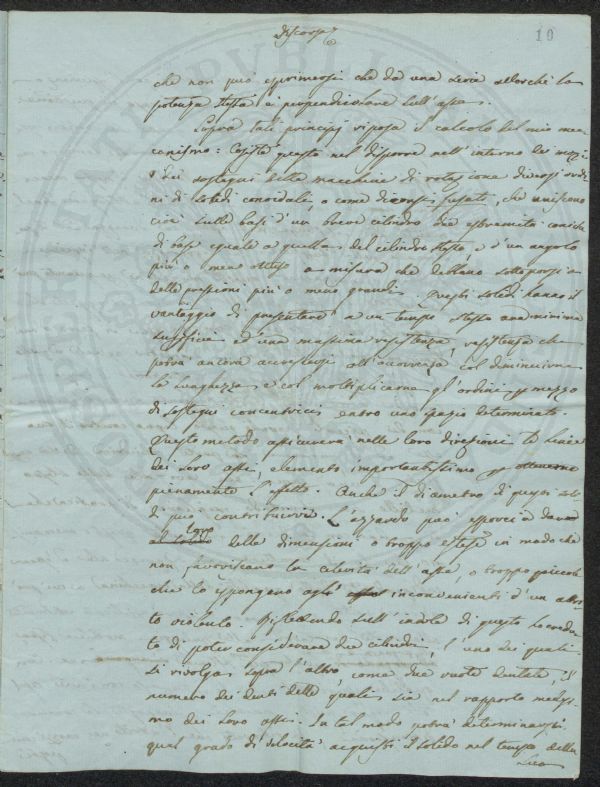 10
che non può esprimersi che da una serie allorchè la
potenza stessa è perpendicolare sull'asse.
Sopra tali principj riposa il calcolo del mio mec-
canismo: Consiste questo nel disporre nell'interno dei mezzi
di sostegni delle macchine di rotazione diversi ordi-
ni di solidi conoidali, o come diconsi fusati, che uniscono
cioè sulle basi d'un breve cilindro due estremità coniche
di base eguale a quella del cilindro stesso, e d'un angolo
più o meno ottuso a misura che debbano sottoporsi a
delle pressioni più o meno grandi. Questi solidi hanno il
vantaggio di presentare a un tempo stesso una minima
superficie ed una massima resistenza, resistenza che
potrà ancora accrescersi all'occorrenza col diminuirne
la lunghezza e col moltiplicarne gl'ordini per mezzo
di sostegni concentrici entro uno spazio determinato.
Questo metodo assicurerà nelle loro direzioni le linee
dei loro assi, elemento importantissimo per ottenerne
pienamente l'effetto. Anche il diametro di questi solidi
di più contribuirvi. L'azzardo può esporci a dare
al solido loro delle dimensioni o troppo estese in modo che
non favoriscano la celerità dell'asse, o troppo piccole
che lo espongano agli inconvenienti d'un attri-
to violento. Riflettendo sull'indole di questo ho credu-
to di poter considerare due cilindri, l'uno dei quali
si rivolga sopra l'altro, come due ruote dentate, il
numero dei denti delle quali sia nel rapporto medesi-
mo dei loro assi. In tal modo potrà determinarsi
qual grado di velocità acquisti il solido nel tempo della
sua